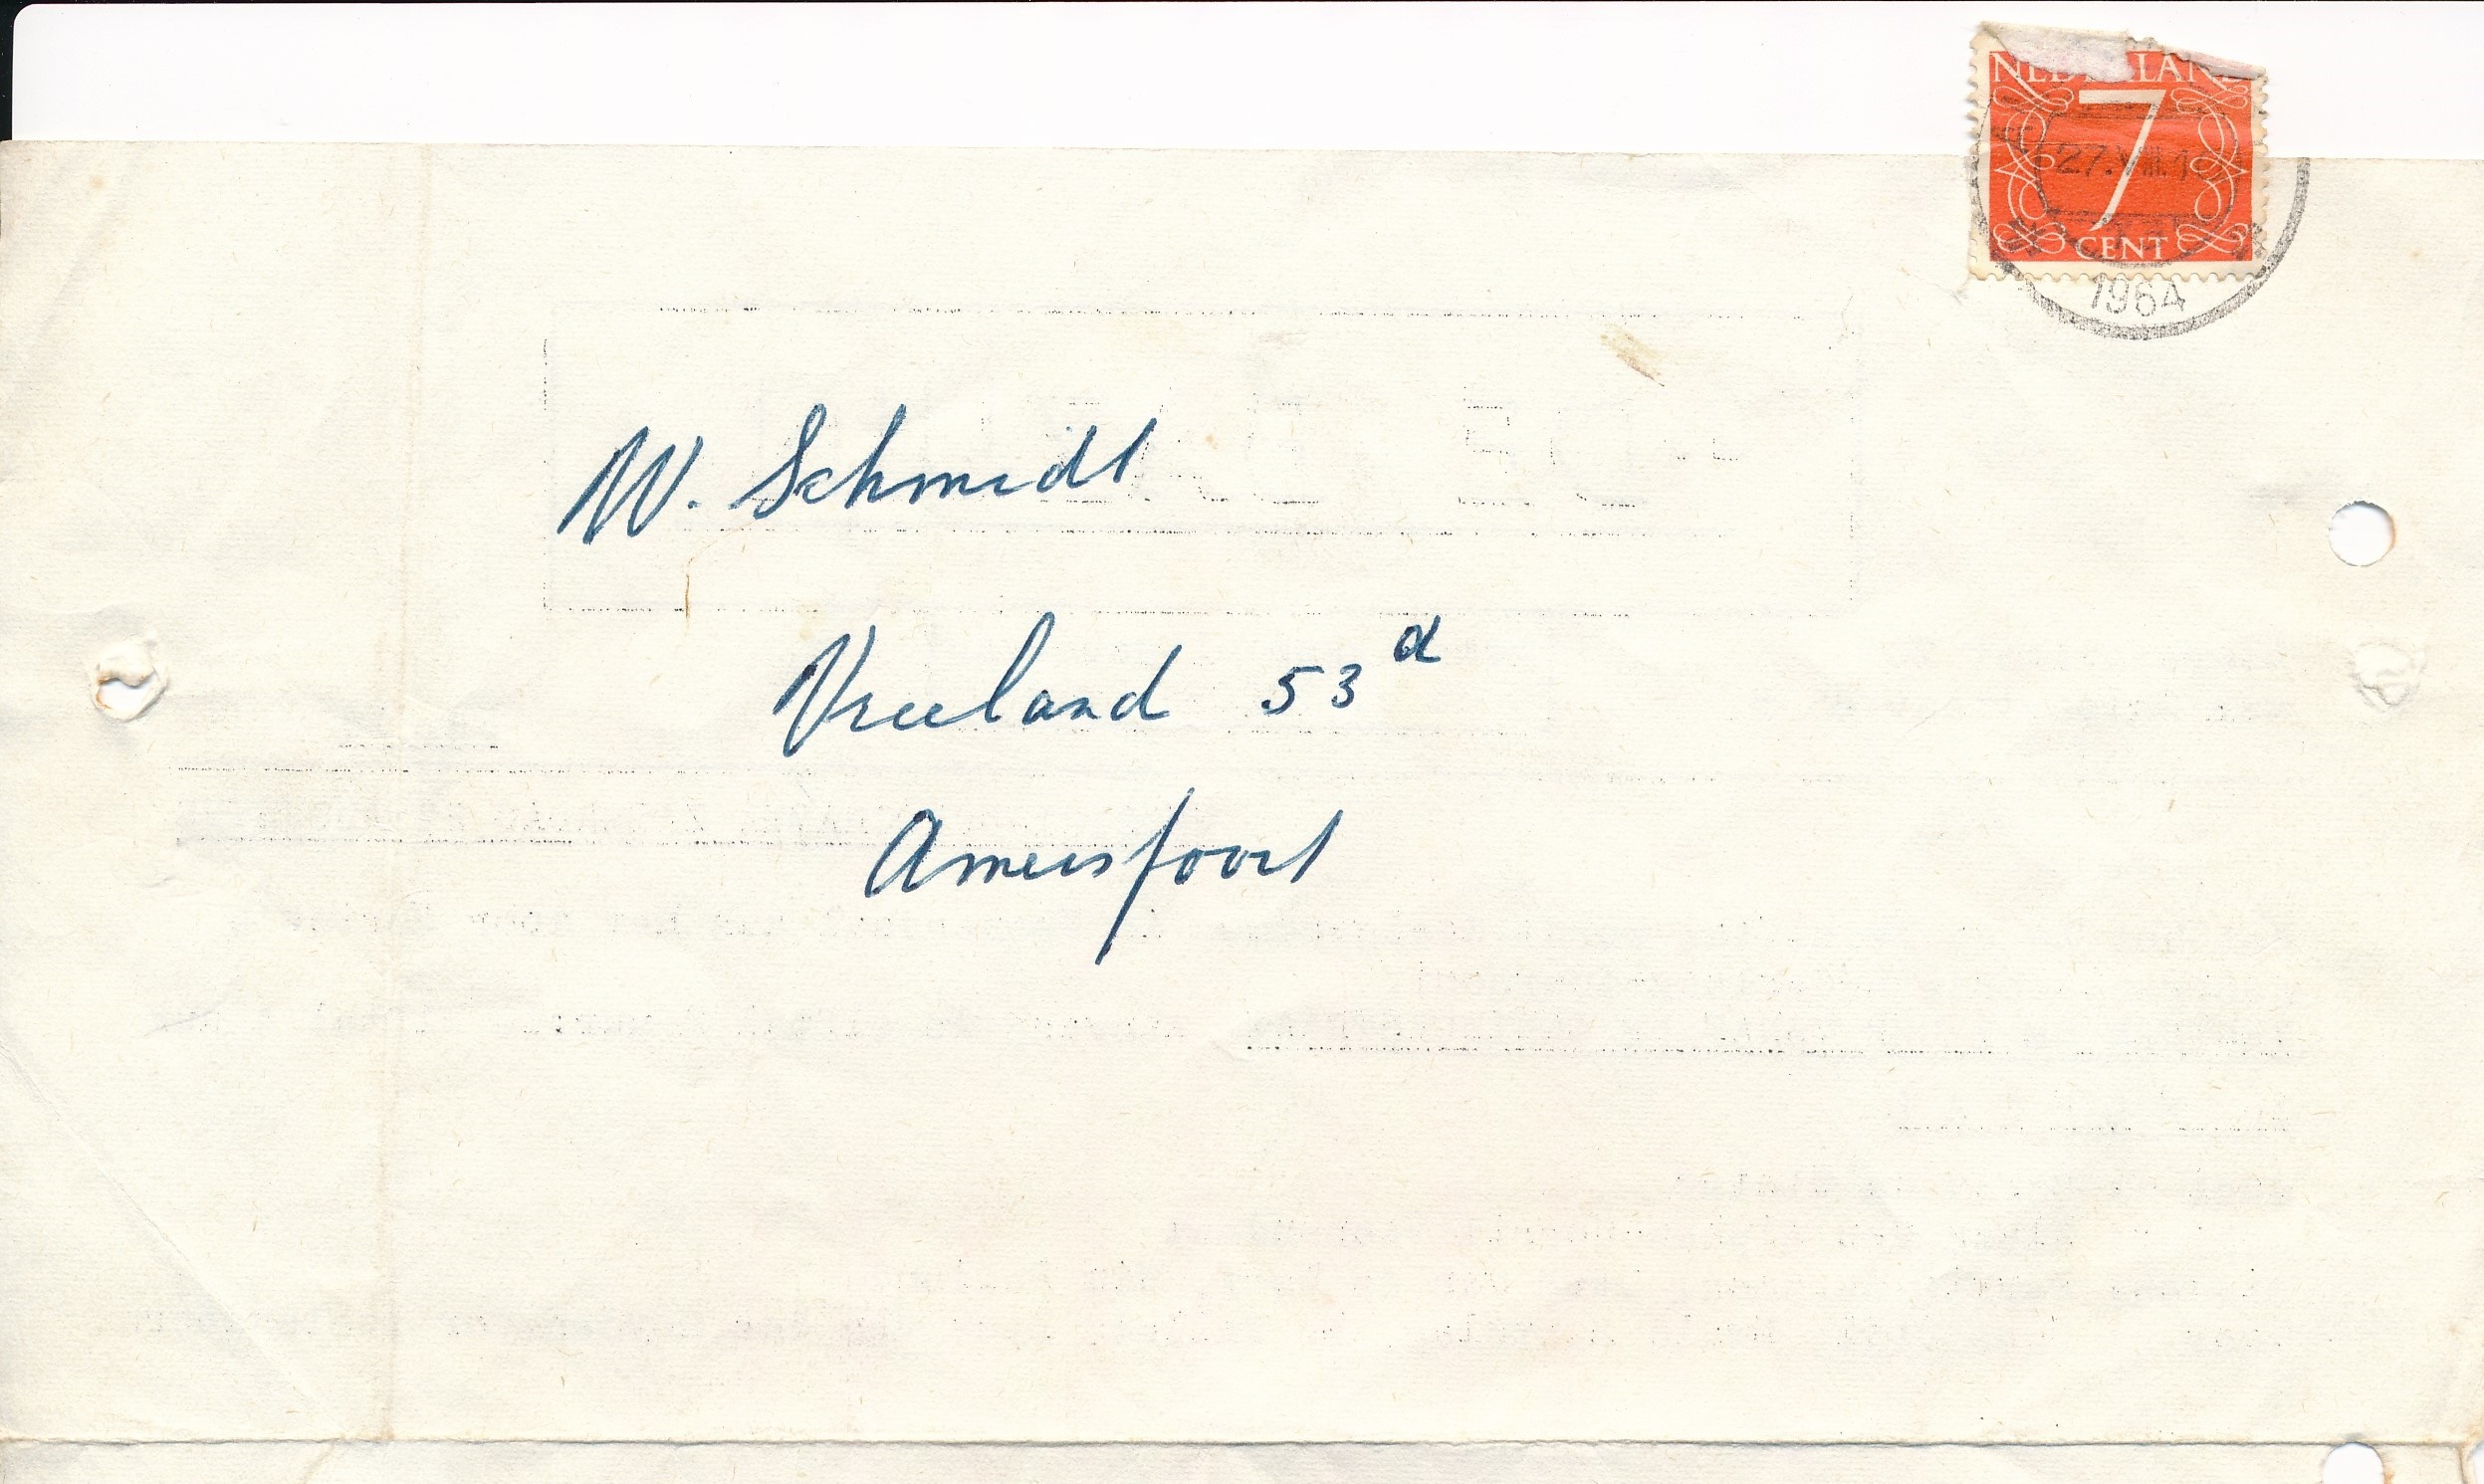 NEDERLAND
7
CENT
27.VIII.
1964
W. Schmidt
Vreeland 53d
Amersfoort